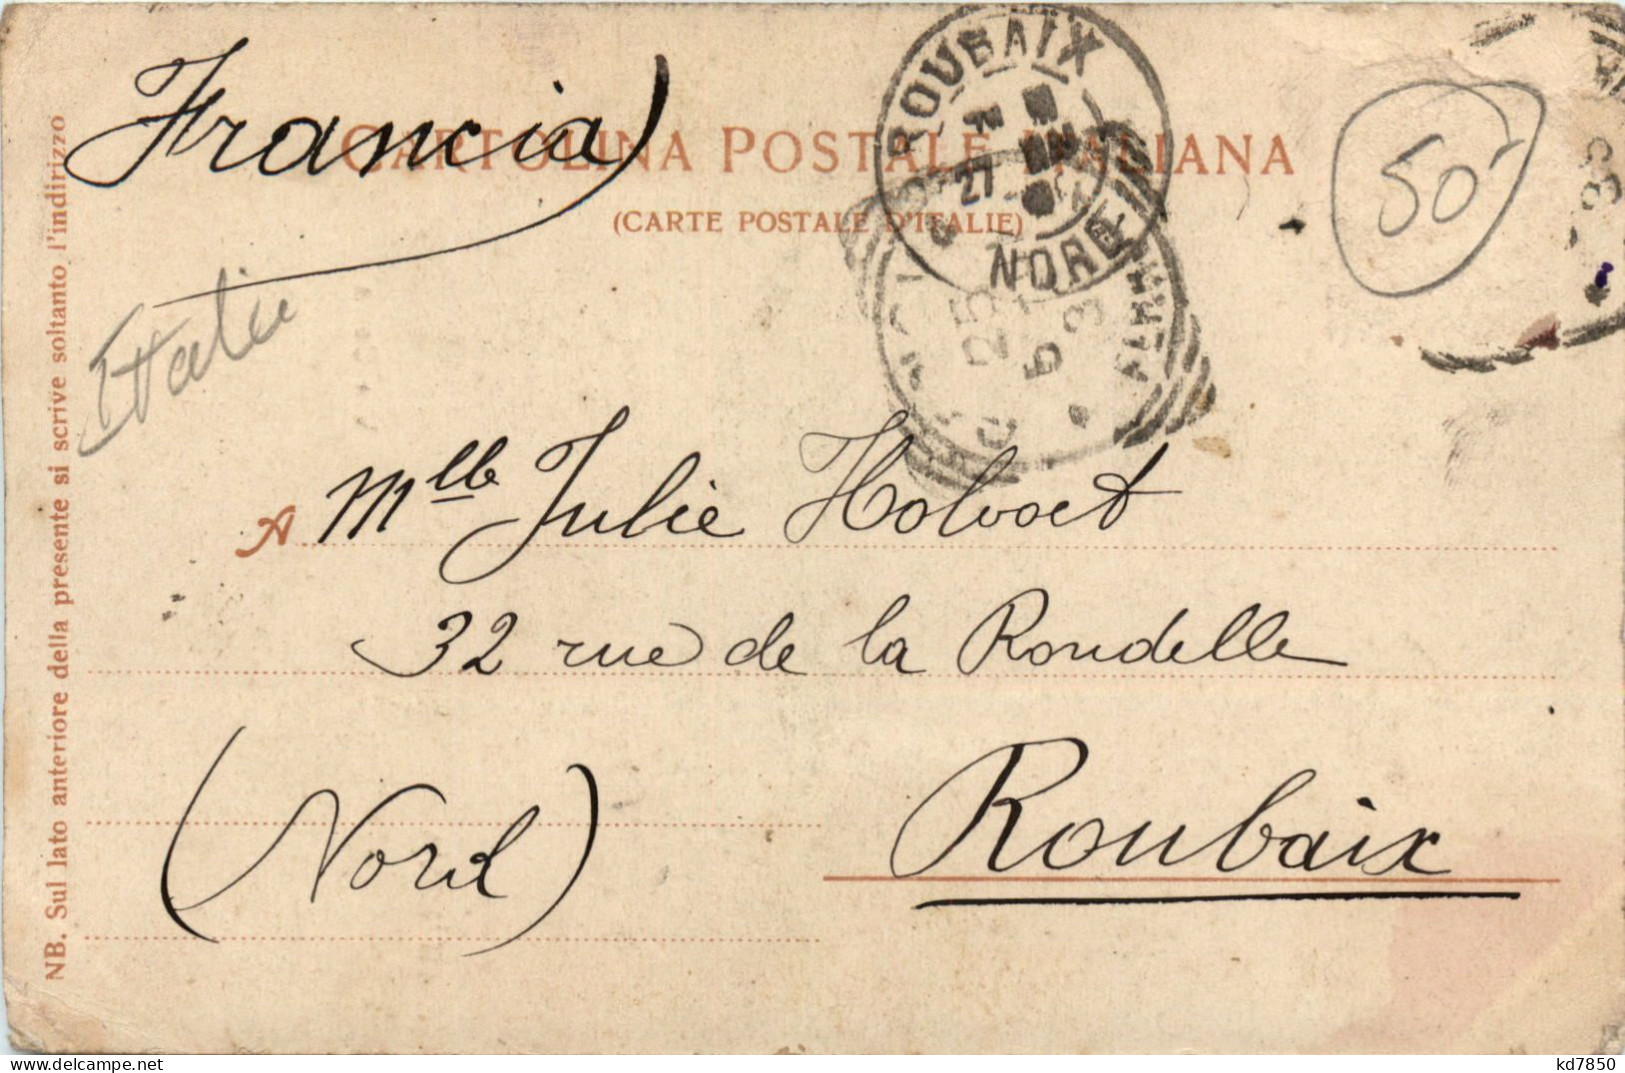 Francia
CARTOLINA POSTALE ITALIANA
(CARTE POSTALE D'ITALIE)
ROUBAIX
27
NORD
25
50
Italie
A Mlle Julie Holvoet
32 rue de la Rondelle
(Nord) Roubaix
NB. Sul lato anteriore della presente si scrive soltanto l'indirizzo
kd7850